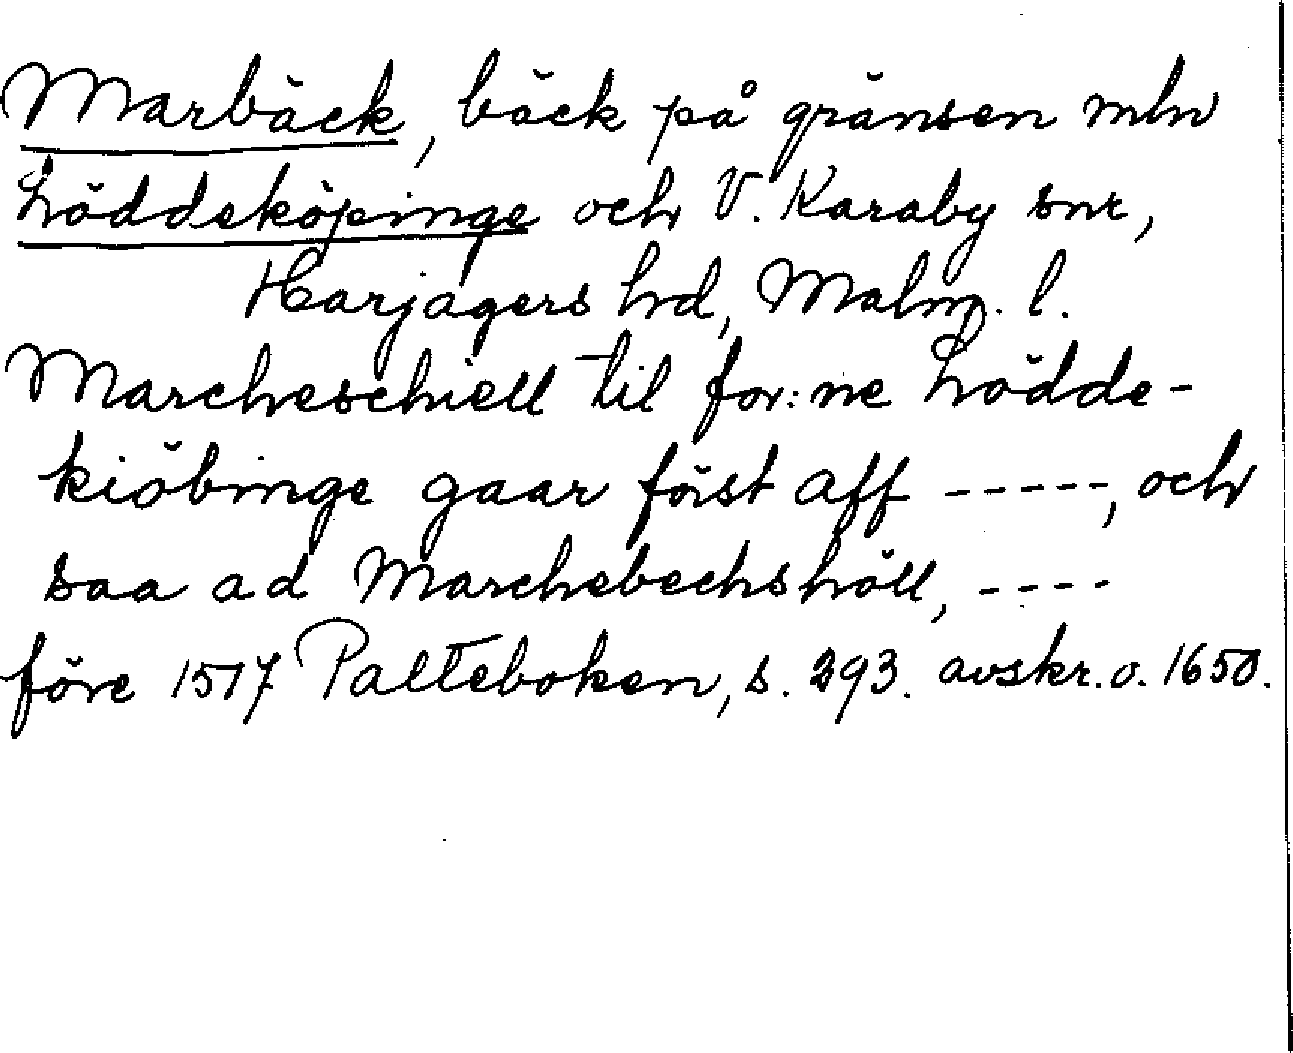 Marbäck, bäck på gränsen mln
Löddeköpinge och V. Karaby snr,
Harjagers hd, Malm. l.
Marcheschiell til for:ne Lödde-
kiöbinge gaar först aff -----, och
saa ad Marchebechshöll, ----
före 1517 Palteboken, s. 393. avskr. o. 1650.